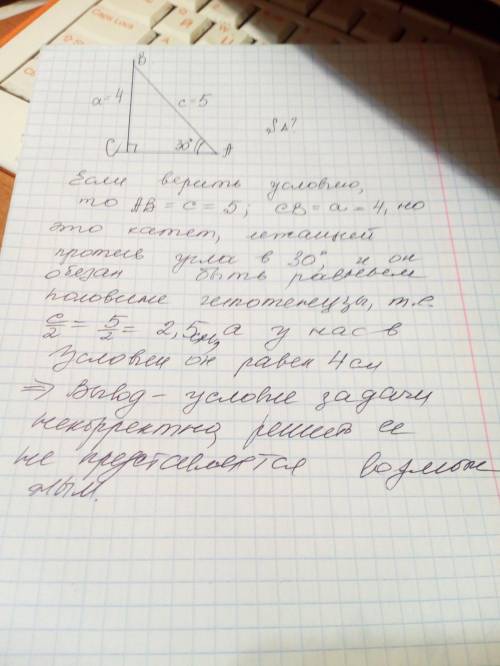 B
a=4
c=5
C
30°
A
S∆?
Если верить условию,
то AB = c = 5; CB = a = 4, но
это катет, лежащей
против угла в 30° и он
обезан быть равным
половине гипотенузы, т.е.
c/2 = 5/2 = 2,5см, а у нас в
условии он равен 4см
⇒ Вывод - условие задачи
некорректна, решить ее
не представляется возмож
ным.